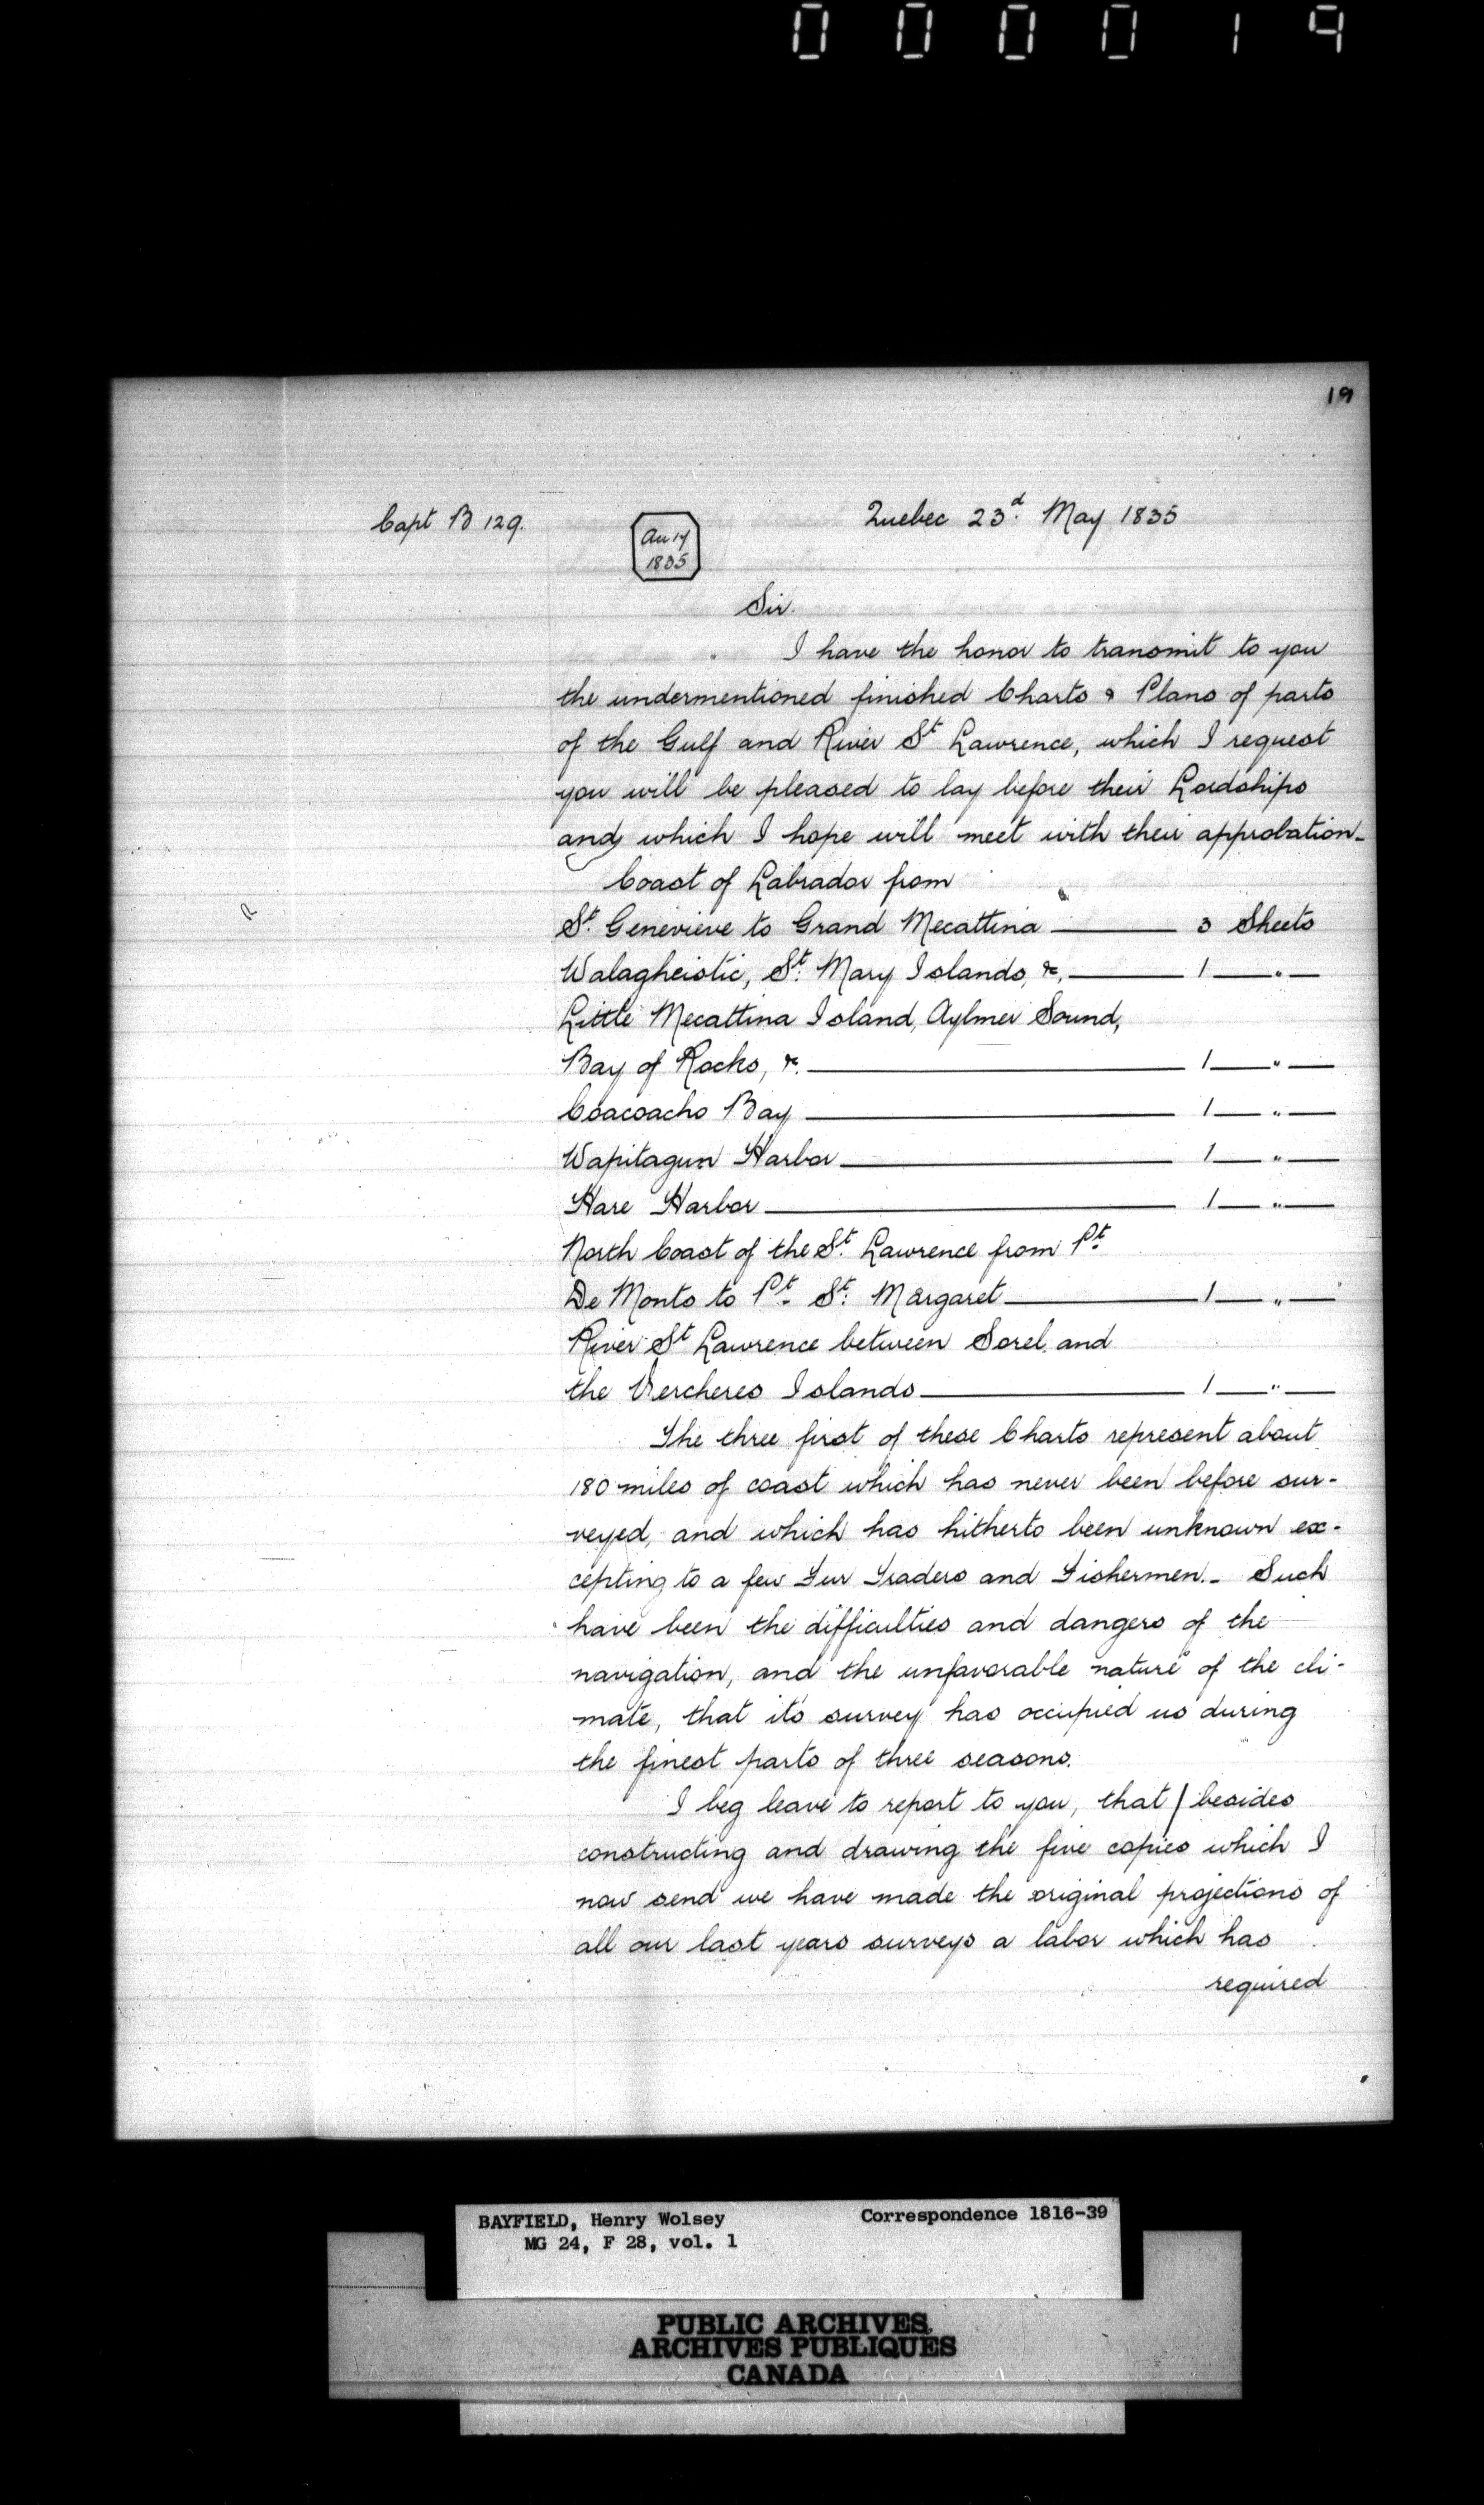 000019
19
Capt B 129.
Au 14
1835
Quebec 23d. May 1835
Sir.
I have the honor to transmit to you
the undermentioned finished Charts & Plans of parts
of the Gulf and River St Lawrence, which I request
you will be pleased to lay before their Lordships
and which I hope will meet with their approbation-
Coast of Labrador from
St. Genevieve to Grand Mecattina ——— 3 Sheets
Walagheistic, St. Mary Islands, &, ——— 1 — " —
Little Mecattina Island, Aylmer Sound,
Bay of Rocks, &. ——— 1 — " —
Coacoacho Bay ——— 1 — " —
Wapitagun Harbor ——— 1 — " —
Hare Harbor ——— 1 — " —
North Coast of the St. Lawrence from Pt.
De Monts to Pt. St. Margaret ——— 1 — " —
River St Lawrence between Sorel and
the Vercheres Islands ——— 1 — " —
The three first of these Charts represent about
180 miles of coast which has never been before sur-
veyed, and which has hitherto been unknown ex-
cepting to a few Fur Traders and Fishermen.- Such
have been the difficulties and dangers of the
navigation, and the unfavorable nature of the cli-
mate, that it's survey has occupied us during
the finest parts of three seasons.
I beg leave to report to you, that / besides
constructing and drawing the five copies which I
now send we have made the original projections of
all our last years surveys a labor which has
required
BAYFIELD, Henry Wolsey Correspondence 1816-39
MG 24, F 28, vol. 1
PUBLIC ARCHIVES
ARCHIVES PUBLIQUES
CANADA